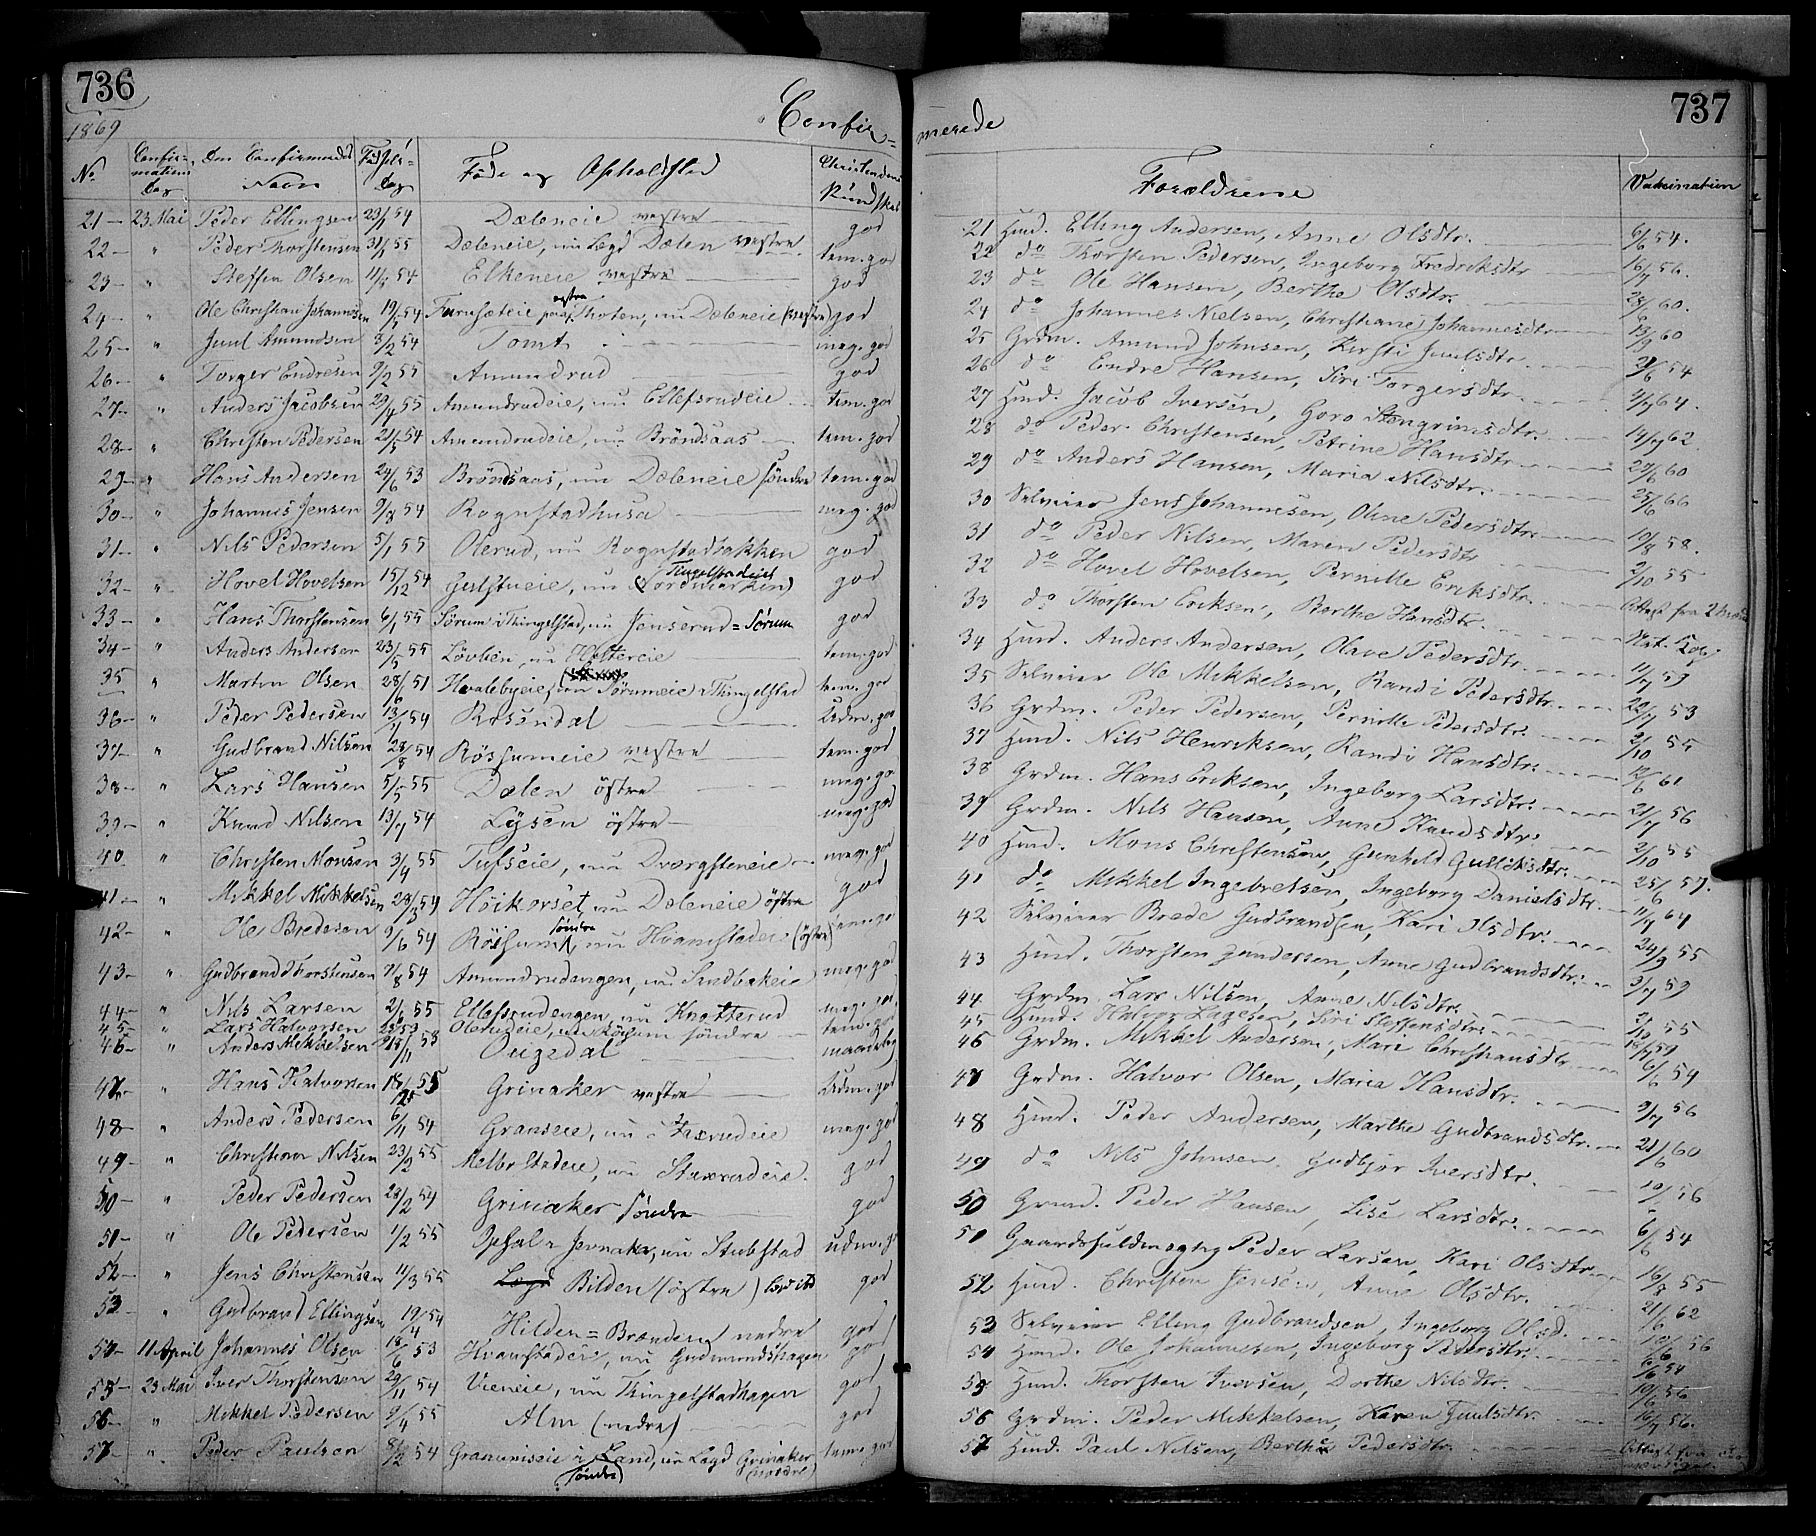 736
1869
Confir=
No.
Confir=
mations
Dag
Den Confirmeredes
Navn
Fødsels=
Dag
Føde og Opholdssted
Christendoms
Kundskab
21 - 23 Mai Peder Ellingsen 23/1 54 Dæleneie vestre god
22 - " Peder Thorstensen 31/1 55 Dæleneie, nu Logd Dælen vestre tem. god
23 - " Steffen Olsen 11/ 54 Elkeneie vestre god
24 - " Ole Christian Johannesen 19/1 54 Furusæteie paa vestre Thoten, nu Dæleneie (vestre) god
25 - " Juul Amundsen 3/2 54 Tomt meg. god
26 - " Torger Endresen 9/2 55 Amundrud god
27 - " Anders Jacobsen 29/4 55 Amundrudeie, nu Ellefsrudeie tem. god
28 - " Christen Pedersen 21/5 54 Amundrudeie, nu Bröndsaas tem. god
29 - " Hans Andersen 24/6 53 Bröndsaas, nu Dæleneie söndre tem. god
30 - " Johannes Jensen 9/8 54 Rognstadhusa meg. god
31 - " Nils Pedersen 5/1 55 Olerud, nu Rognstadbakken god
32 - " Hovel Hovelsen 15/12 54 Gulstueie, nu Tingelstadeie (Nordmarken) god
33 - " Hans Thorstensen 6/1 55 Sörum i Thingelstad, nu Jenserud = Sörum god
34 - " Anders Andersen 23/5 55 Lövben, nu Holtereie tem. god
35 " Martin Olsen 28/6 51 Hvalebyeie, nu Sörumeie i Thingelstad tem. god
36 - " Peder Pedersen 13/1 54 Rosendal Udm. god
37 - " Gudbrand Nilsen 28/8 54 Rössumeie vestre tem. god
38 - " Lars Hansen 5/5 55 Dælen östre meg. god
39 - " Knud Nilsen 13/7 54 Lysen östre meg. god
40 " Christen Monsen 3/4 55 Tufseie, nu Dvergsteneie meg. god
41 - " Mikkel Mikkelsen 28/3 54 Höikorset, nu Dæleneie östre god
42 - " Ole Bredesen 9/6 54 Rössum söndre, nu Hvamstadeie (östre) tem. god
43 - " Gudbrand Thorstensen 7/8 54 Amundrudengen, nu Sandbakeie meg. god
44 - " Nils Larsen 2/6 55 Ellefsrudengen nu Knatterud meg. god
45 - " Lars Halvorsen 53 Olerudeie, nu Röisum söndre tem. god
46 - " Anders Mikkelsen 18/11 53 Ougedal maadelig
47 - " Hans Halvorsen 18/2 55 Grinaker vestre Udm. god
48 - " Anders Pedersen 6/11 54 Granseie, nu Staxrudeie meg. god
49 - " Christian Nilsen 23/2 55 Melbostadeie, nu Staxrudeie god
50 - " Peder Pedersen 28/2 54 Grinaker söndre god
51 - " Ole Pedersen 1/2 55 Opsal i Jevnaker, nu Stubstad udm. god
52 - " Jens Christensen 11/3 55 Bilden (östre) god
53 - " Gudbrand Ellingsen 19/4 54 Hilden = Branden nedre god
54 - 11 April Johannes Olsen 18/6 53 Hvamstadeie, nu Gudmundshagen god
55 - 23 Mai Iver Thorstensen 29/11 54 Vieneie, nu Thingelstadhagen god
56 - " Mikkel Pedersen 9/4 55 Alm (nedre) god
57 - " Peder Paulsen 8/2 54 Granumseie i söndre Land, nu Logd Grinaker (nordre) tem. god
737
merede
Forældrene
Vakcination
21 Husd. Elling Andersen, Anne Olsdtr. 6/6 54.
22 do Thorsten Pedersen, Ingeborg Fredriksdtr 16/7 56.
23 do Ole Hansen, Berthe Olsdtr. 28/6 60.
24 do Johannes Nielsen, Christiane Johannesdtr. 13/9 60
25 Grdm. Amund Johnsen, Kirsti Juulsdtr. 21/6 54
26 do Endre Hansen, Siri Torgersdtr. 9/7 64.
27 Husd. Jacob Iversen, Goro Stengrimsdtr. 14/7 62
28 do Peder Christensen, Petrine Hansdtr. 27/6 60
29 do Anders Hansen, Maria Nilsdtr. 25/6 66
30 Selveier Jens Johannesen, Oline Pedersdtr. 19/8 58.
31 do Peder Nilsen, Maren Pedersdtr 2/10 55
32 do Hovel Hovelsen, Pernille Eriksdtr.
33 do Thorsten Eriksen, Berthe Hansdtr.
34 Husd. Anders Andersen, Olave Pedersdtr. 11/7 59
35 Selveier Ole Mikkelsen, Randi Pedersdtr. 22/7 53
36 Grdm. Peder Pedersen, Pernille Pedersdtr. 2/10 55
37 Husd. Nils Henriksen, Randi Hansdtr. 12/6 61
38 Grdm. Hans Eriksen, Ingeborg Larsdtr. 21/7 56
39 Grdm. Nils Hansen, Anne Knudsdtr. 2/10 55
40 Husd. Mons Christensen, Gunhild Gulliksdtr. 25/6 57.
41 do Mikkel Ingebretsen, Ingeborg Danielsdtr. 11/7 64
42 Selveier Brede Gudbrandsen, Kari Olsdtr. 24/9 55
43 Husd. Thorsten Gundersen, Anne Gudbrandsdtr. 3/7 59
44 Grdm. Lars Nilsen, Anne Nilsdtr. 2/10 55
45 Husd. Halvor Lagesen, Siri Steffensdtr. 18/7 59
46 Grdm. Mikkel Andersen, Mari Christiansdtr 6/6 54
47 Grdm. Halvor Olsen, Maria Hansdtr. 9/7 56
48 Husd. Peder Andersen, Marthe Gudbrandsdtr. 21/6 60
49 do Nils Johnsen, Gudbjør Iversdtr. 56
50 Grmd. Peder Hansen, Lise Larsdtr. 6/6 54
51 Gaardsfuldmægtig Peder Larsen, Kari Olsdtr. 16/8 55
52 Husd. Christen Jensen, Anne Olsdtr. 21/6 62
53 Selveier Elling Gudbrandsen, Ingeborg Olsd. 56
54 Husd. Ole Johannesen, Ingeborg Pedersdtr. 6/6 54
55 Husd. Thorsten Iversen, Dorthe Nilsdtr. 19/6 56
56 Grdm. Peder Mikkelsen, Karen Juulsdtr. 16/7 56.
57 Husd. Paul Nilsen, Berthe Pedersdtr.